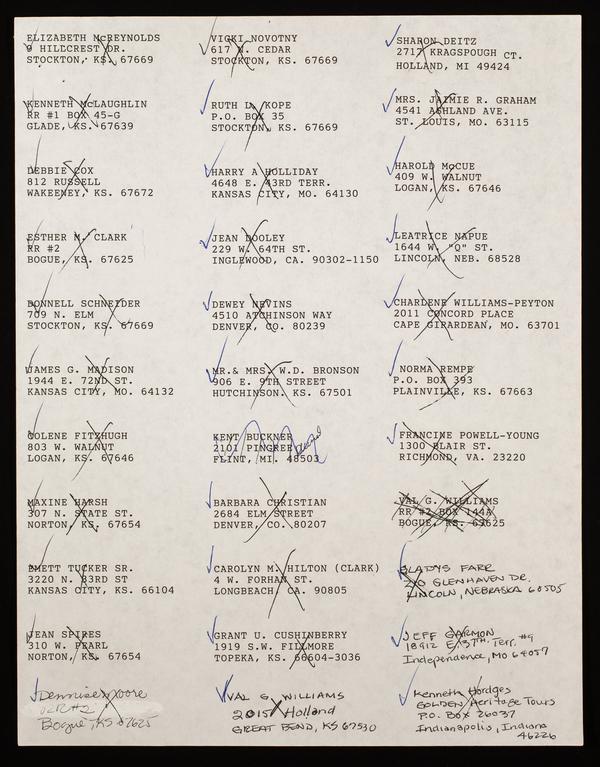 ELIZABETH McREYNOLDS
9 HILLCREST DR.
STOCKTON, KS. 67669
KENNETH McLAUGHLIN
RR #1 BOX 45-G
GLADE, KS. 67639
DEBBIE COX
812 RUSSELL
WAKEENEY, KS. 67672
ESTHER M. CLARK
RR #2
BOGUE, KS. 67625
DONNELL SCHNEIDER
709 N. ELM
STOCKTON, KS. 67669
JAMES G. MADISON
1944 E. 72ND ST.
KANSAS CITY, MO. 64132
COLENE FITZHUGH
803 W. WALNUT
LOGAN, KS. 67646
MAXINE HARSH
307 N. STATE ST.
NORTON, KS. 67654
EMETT TUCKER SR.
3220 N. 83RD ST
KANSAS CITY, KS. 66104
JEAN SPIRES
310 W. PEARL
NORTON, KS. 67654
Moore
Bogue, KS 67625
VICKI NOVOTNY
617 N. CEDAR
STOCKTON, KS. 67669
RUTH L. KOPE
P.O. BOX 35
STOCKTON, KS. 67669
HARRY A HOLLIDAY
4648 E. 43RD TERR.
KANSAS CITY, MO. 64130
JEAN DOOLEY
229 W. 64TH ST.
INGLEWOOD, CA. 90302-1150
DEWEY NEVINS
4510 ATCHINSON WAY
DENVER, CO. 80239
MR.& MRS. W.D. BRONSON
906 E. 9TH STREET
HUTCHINSON, KS. 67501
KENT BUCKNER
2101 PINGREE
FLINT, MI. 48503
BARBARA CHRISTIAN
2684 ELM STREET
DENVER, CO. 80207
CAROLYN M. HILTON (CLARK)
4 W. FORHAN ST.
LONGBEACH, CA. 90805
GRANT U. CUSHINBERRY
1919 S.W. FILLMORE
TOPEKA, KS. 66604-3036
VAL G. WILLIAMS
2015 Holland
GREAT BEND, KS 67530
SHARON DEITZ
2717 KRAGSPOUGH CT.
HOLLAND, MI 49424
MRS. JAIMIE R. GRAHAM
4541 ASHLAND AVE.
ST. LOUIS, MO. 63115
HAROLD McCUE
409 W. WALNUT
LOGAN, KS. 67646
LEATRICE NAPUE
1644 W. "Q" ST.
LINCOLN, NEB. 68528
CHARLENE WILLIAMS-PEYTON
2011 CONCORD PLACE
CAPE GIRARDEAN, MO. 63701
NORMA REMPE
P.O. BOX 393
PLAINVILLE, KS. 67663
FRANCINE POWELL-YOUNG
1300 BLAIR ST.
RICHMOND, VA. 23220
VAL G. WILLIAMS
RR #2 BOX 144A
BOGUE, KS. 67625
GLADYS FARR
GLENHAVEN DR.
LINCOLN, NEBRASKA
JEFF GARMON
18912 E. 37TH Terr. #9
Independence, MO 64057
Kenneth Hordges
GOLDEN Heritage Tours
P.O. Box 26037
Indianapolis, Indiana
46226